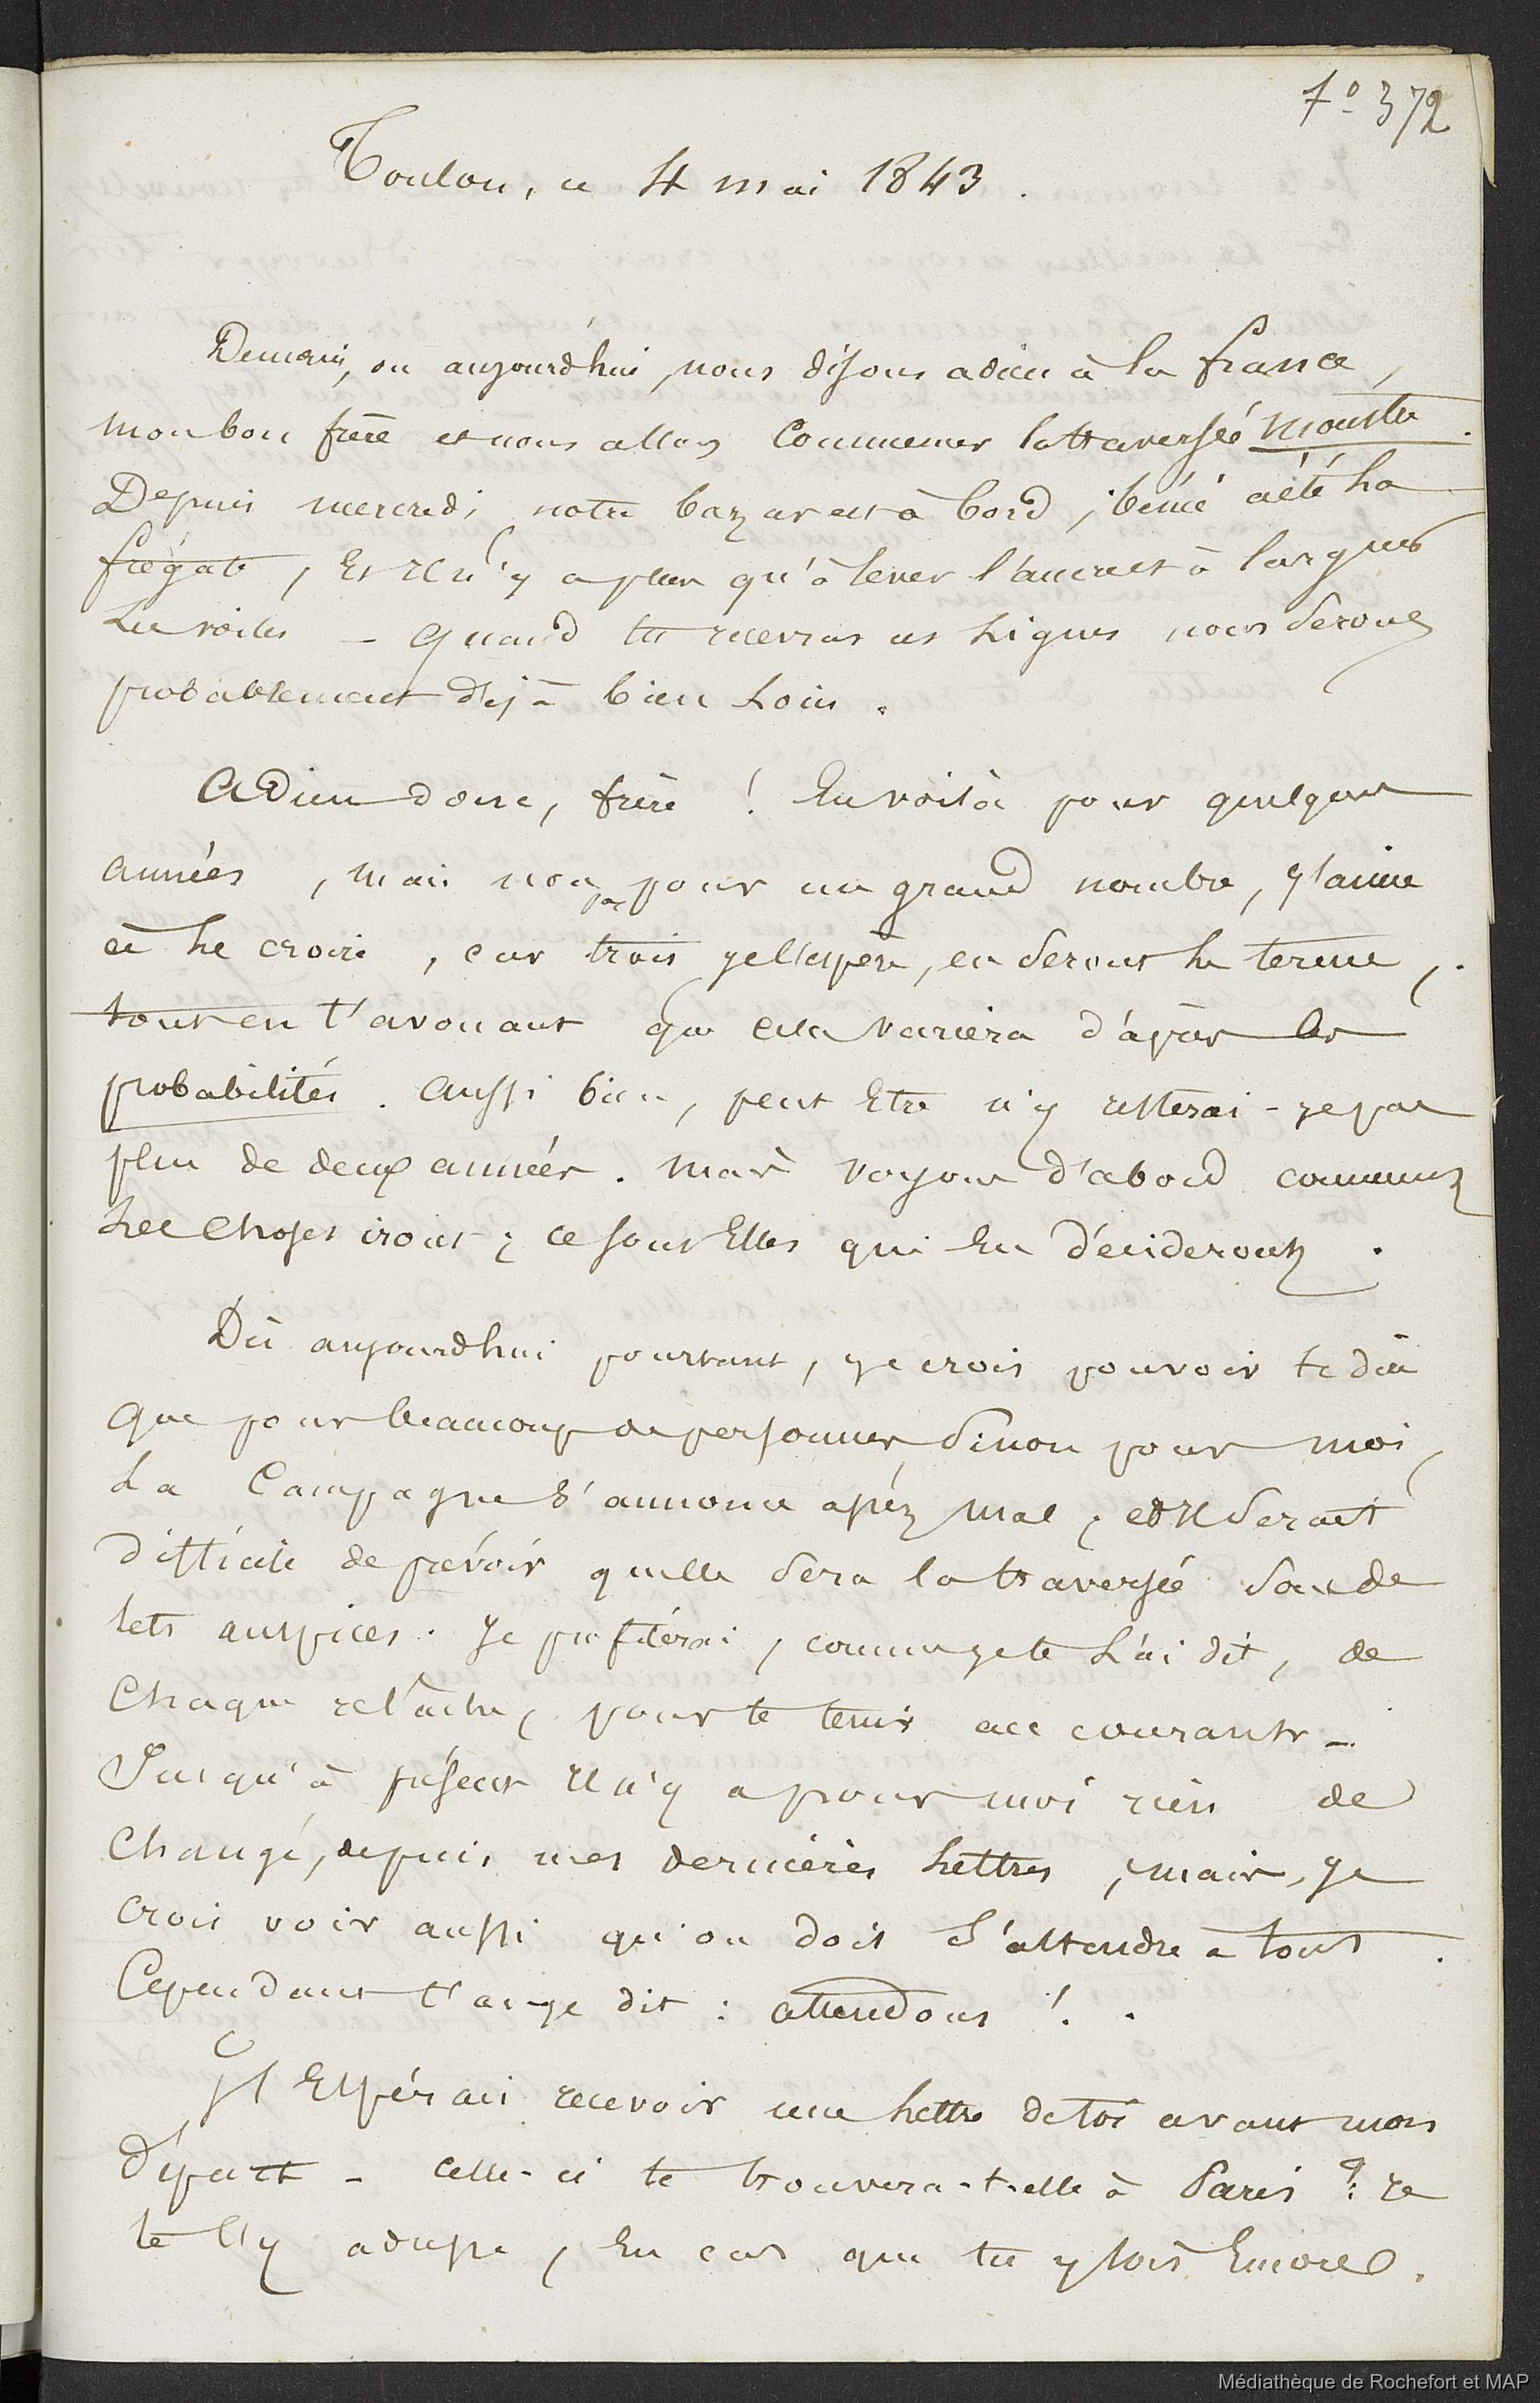 fo 372
Toulon, ce 4 mai 1843.
Demain, ou aujourd'hui, nous disons adieu à la france,
mon bon frère et nous allons commencer la traversée monstre.
Depuis mercredi notre bazar est à bord, bénie a été la
frégate, Et Il n'y a plus qu'à lever l'ancre et à larguer
les voiles — quand tu recevras ces lignes nous serons
probablement déjà bien loin.
Adieu donc, frère ! En voilà pour quelques
années, mais non pas pour un grand nombre, j'aime
à le croire, car trois je l'espère, en seront le terme,
tout en t'avouant que cela variera d'après les
probabilités. Aussi bien, peut Etre n'y resterai-je pas
plus de deux années. Mais voyons d'abord comment
les choses iront ; ce sont Elles qui En décideront.
Dès aujourd'hui pourtant, je crois pouvoir te dire
que pour beaucoup de personnes, sinon pour moi,
La Campagne s'annonce assez mal ; et Il serait
difficile de prévoir quelle sera la traversée sous de
tels auspices. Je profiterai, comme je te l'ai dit, de
chaque relâche, pour te tenir au courant —
Jusqu'à présent Il n'y a pour moi rien de
changé, depuis mes dernières lettres, mais, je
crois voir aussi qu'on doit s'attendre à tout.
Cependant t'ai-je dit : attendons !.
J'Espérais recevoir une lettre de toi avant mon
départ — celle-ci te trouvera-t-elle à Paris ? Je
te l'y adresse, En cas que tu y sois Encore.
Médiathèque de Rochefort et MAP